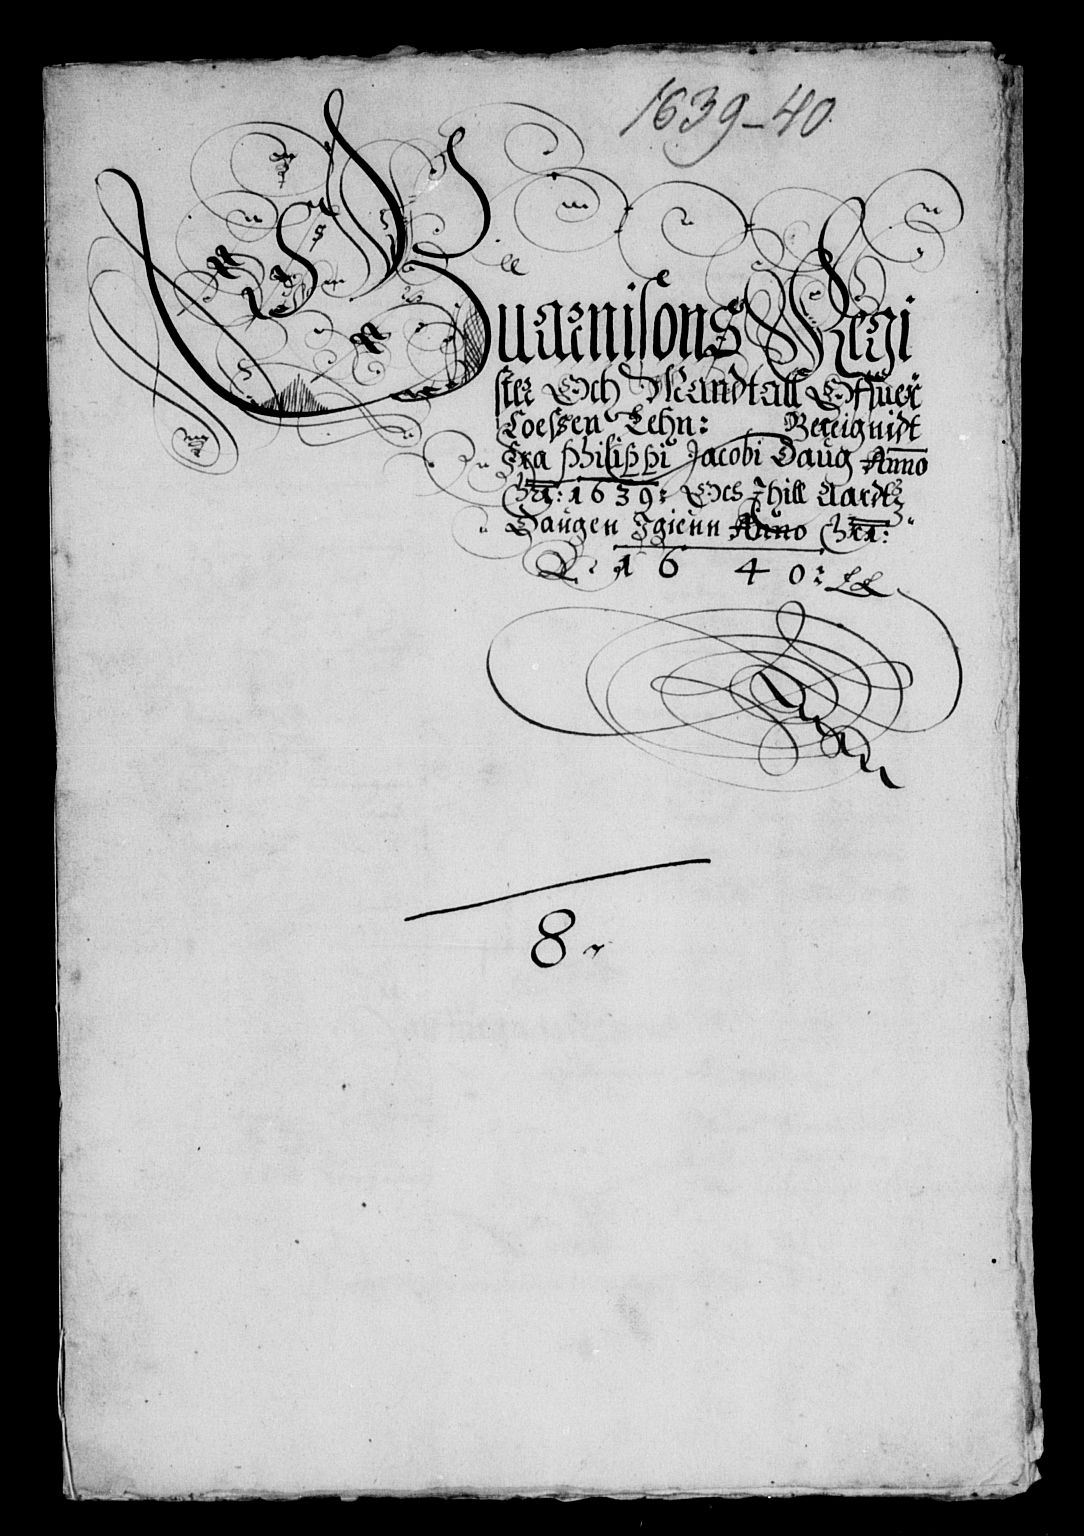 1639-40
Guarnisons Regi
ster Och Mandtall Offuer
Coeszen Lehn: Bereignidt
Fra Philippi Jacobi Daug Anno
1639: Och Thill Aardtz
Daugen Igienn Anno
1640:
8